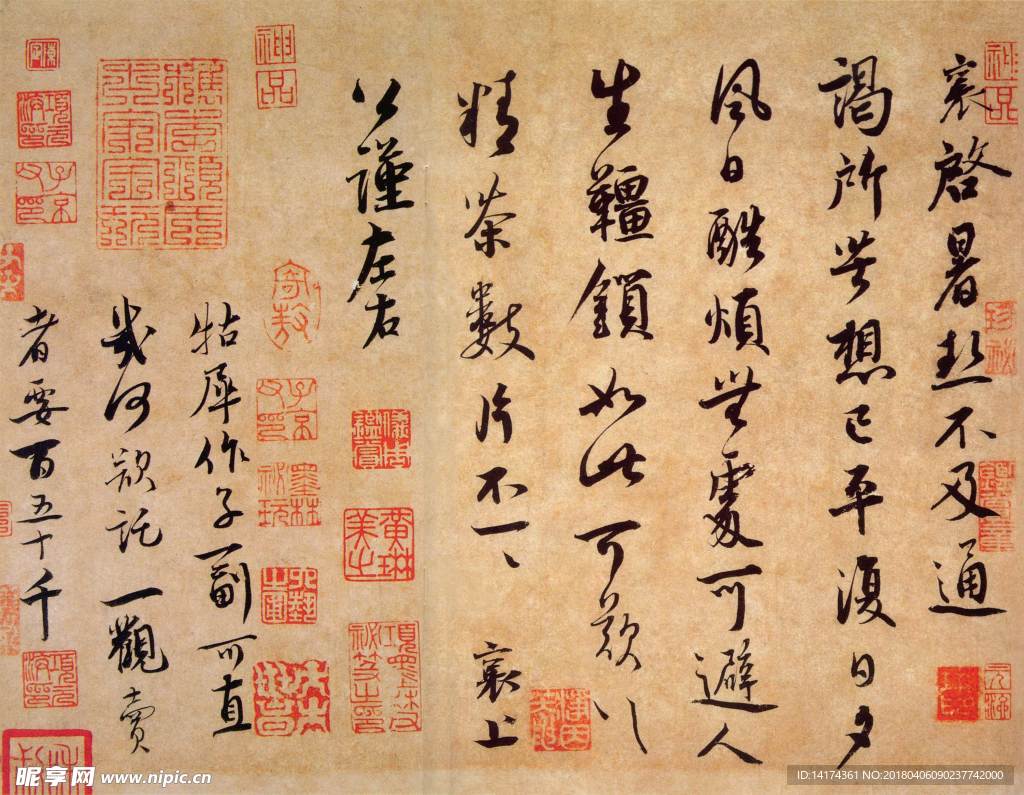 襄啓暑熱不及通
謁所苦想已平復日夕
風日酷煩無處可避人
生韁鎖如此可歎〻
精茶數片不一〻 襄上
公謹左右
牯犀作子一副可直
幾何欲託一觀賣
者要百五十千
神品
神品
子京
墨林
黃琳
美之
昵享网 www.nipic.cn
ID:14174361 NO:20180406090237742000